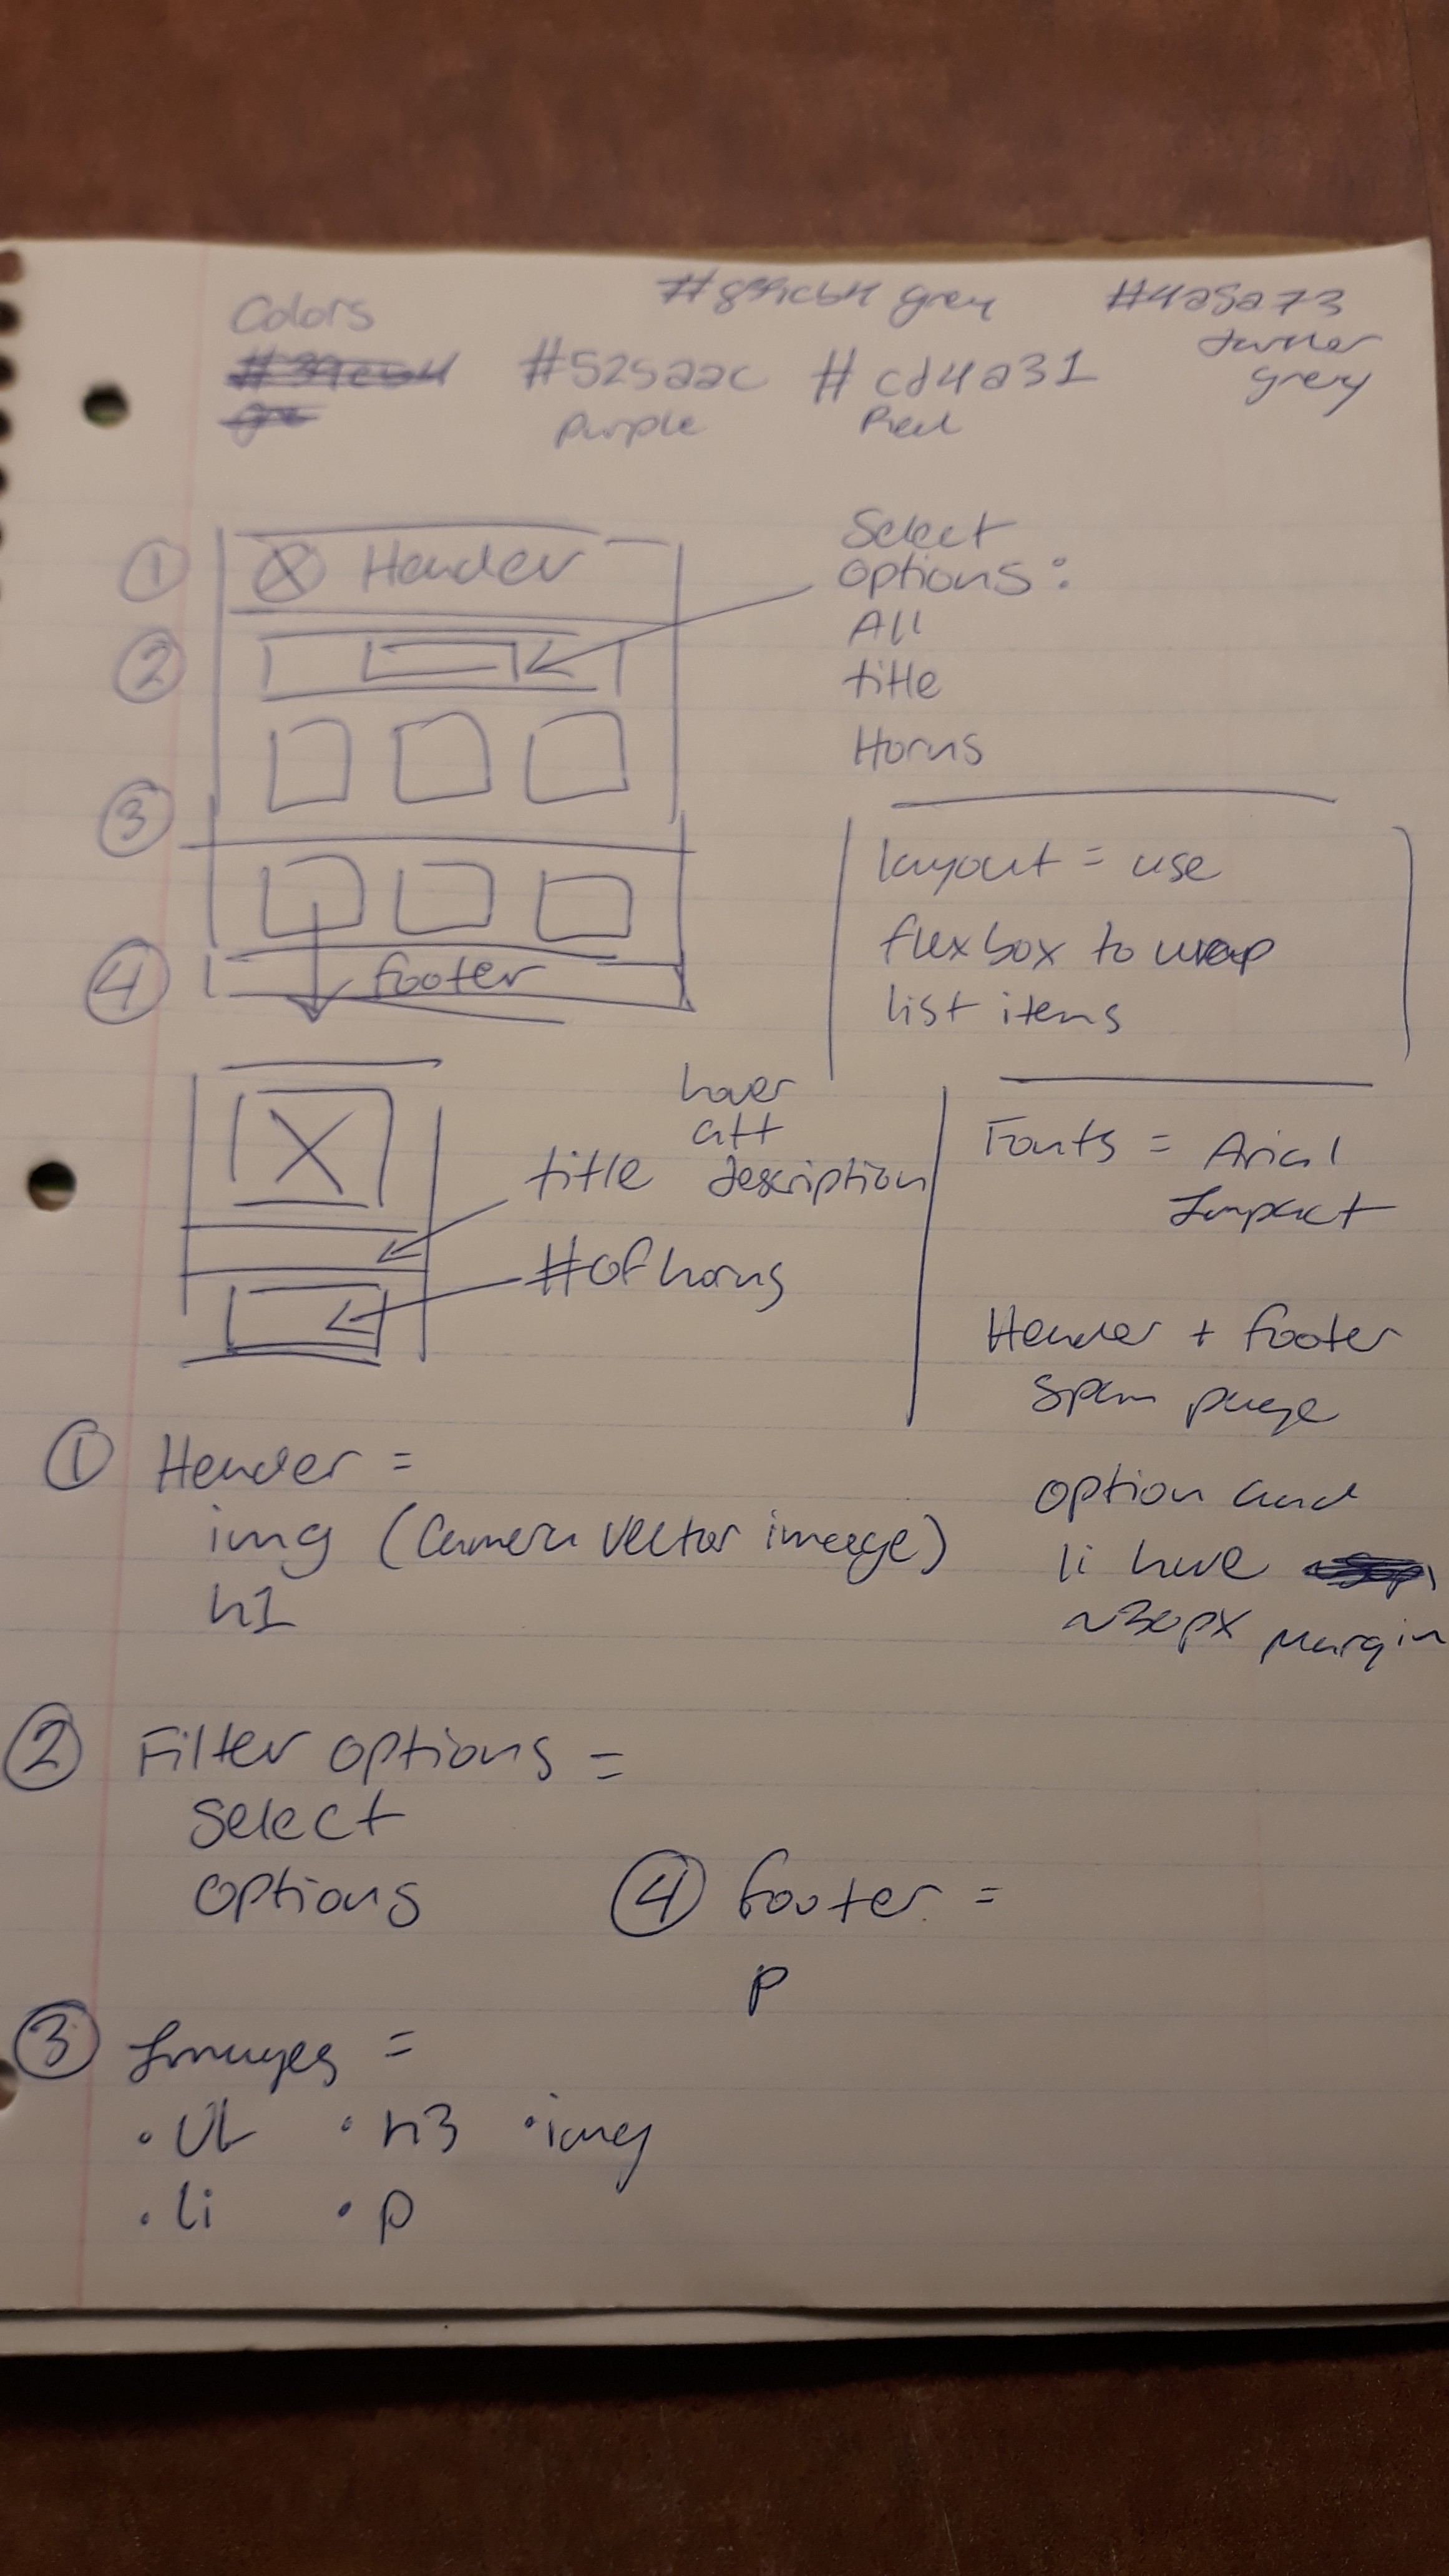 Colors
grey
#4a5a73
darker
grey
#525aac
purple
#cd4a31
Red
① Header
②
③
④ footer
Select
options:
All
title
Horns
layout = use
flexbox to wrap
list items
title
hover
att
description
# of horns
Fonts = Arial
Impact
Header + footer
span page
option and
li have
~30px margin
① Header =
img (Camera vector image)
h1
② Filter options =
Select
options
④ footer =
p
③ Images =
• UL • h3 • img
• li • p